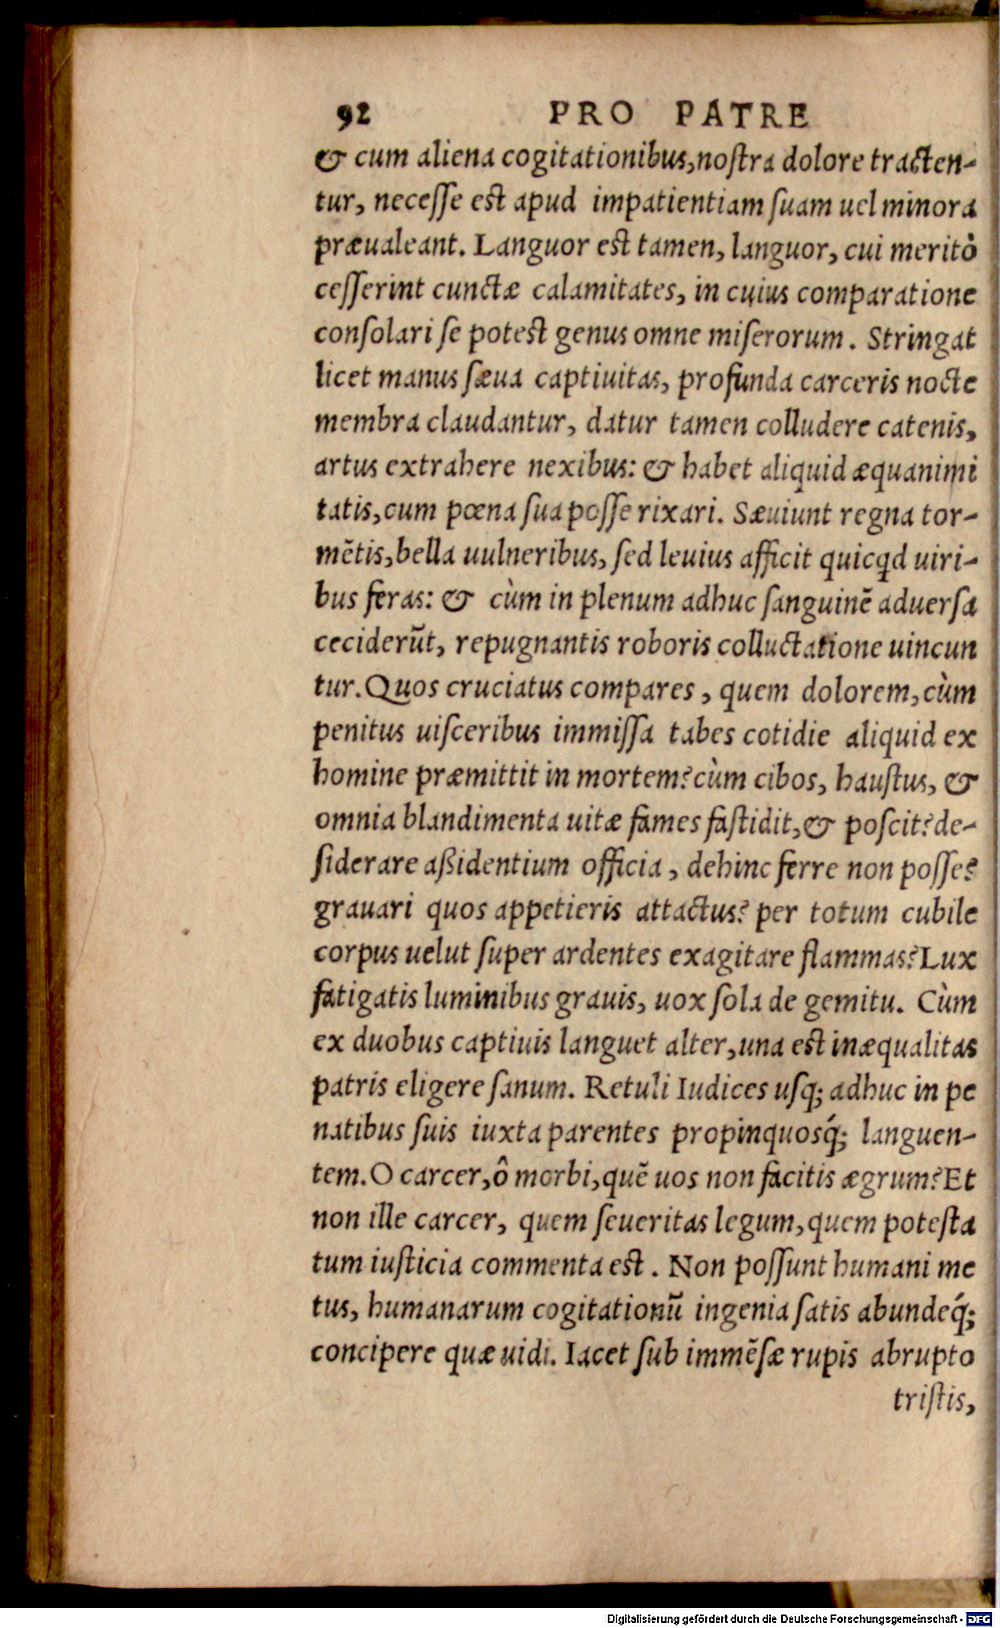 92 PRO PATRE
& cum aliena cogitationibus,noſtra dolore tracten-
tur, neceſſe est apud impatientiam ſuam uel minora
præualeant. Languor est tamen, languor, cui meritò
ceſſerint cunctæ calamitates, in cuius comparatione
conſolari ſe potest genus omne miſerorum. Stringat
licet manus ſæua captiuitas, profunda carceris nocte
membra claudantur, datur tamen colludere catenis,
artus extrahere nexibus: & habet aliquid æquanimi
tatis,cum pœna ſua poſſe rixari. Sæuiunt regna tor-
mẽtis,bella uulneribus, ſed leuius afficit quicꝗd uiri-
bus feras: & cùm in plenum adhuc ſanguinẽ aduerſa
ceciderũt, repugnantis roboris colluctatione uincun
tur.Quos cruciatus compares, quem dolorem,cùm
penitus uiſceribus immiſſa tabes cotidie aliquid ex
homine præmittit in mortem?cùm cibos, hauſtus, &
omnia blandimenta uitæ fames faſtidit,& poſcit?de-
ſiderare aßidentium officia, dehinc ferre non poſſe?
grauari quos appetieris attactus? per totum cubile
corpus uelut ſuper ardentes exagitare flammas?Lux
fatigatis luminibus grauis, uox ſola de gemitu. Cùm
ex duobus captiuis languet alter,una est inæqualitas
patris eligere ſanum. Retuli Iudices uſq; adhuc in pe
natibus ſuis iuxta parentes propinquosq́; languen-
tem.O carcer,ô morbi,quẽ uos non facitis ægrum?Et
non ille carcer, quem ſeueritas legum,quem poteſta
tum iuſticia commenta est. Non poſſunt humani me
tus, humanarum cogitationũ ingenia ſatis abundeq́;
concipere quæ uidi. Iacet ſub immẽſæ rupis abrupto
triſtis,
Digitalisierung gefördert durch die Deutsche Forschungsgemeinschaft - DFG